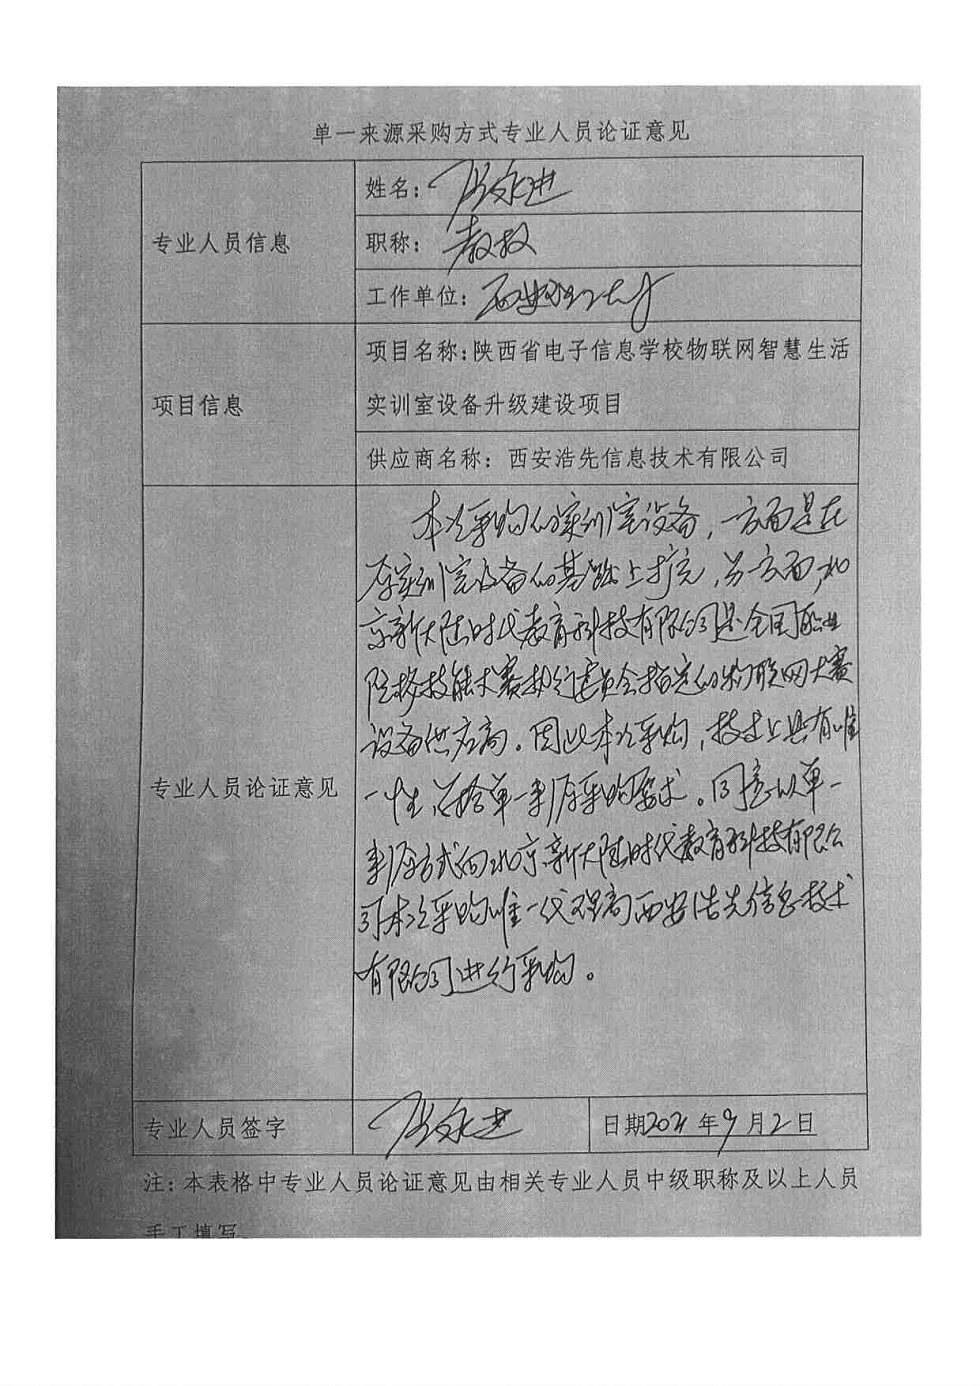 单一来源采购方式专业人员论证意见
专业人员信息
姓名：
职称：教授
工作单位：西安理工大学
项目信息
项目名称:陕西省电子信息学校物联网智慧生活
实训室设备升级建设项目
供应商名称：西安浩先信息技术有限公司
专业人员论证意见
本次采购的实训室设备，一方面是在
原实训室设备的基础上扩充，另一方面，北
京新大陆时代教育科技有限公司是全国职业
院校技能大赛执行委员会指定的物联网大赛
设备供应商。因此本次采购，技术上具有唯
一性，符合单一来源采购要求。同意以单一
来源方式向北京新大陆时代教育科技有限公
司本次采购唯一代理商西安浩先信息技术
有限公司进行采购。
专业人员签字
日期2021年9月2日
注：本表格中专业人员论证意见由相关专业人员中级职称及以上人员
手工填写